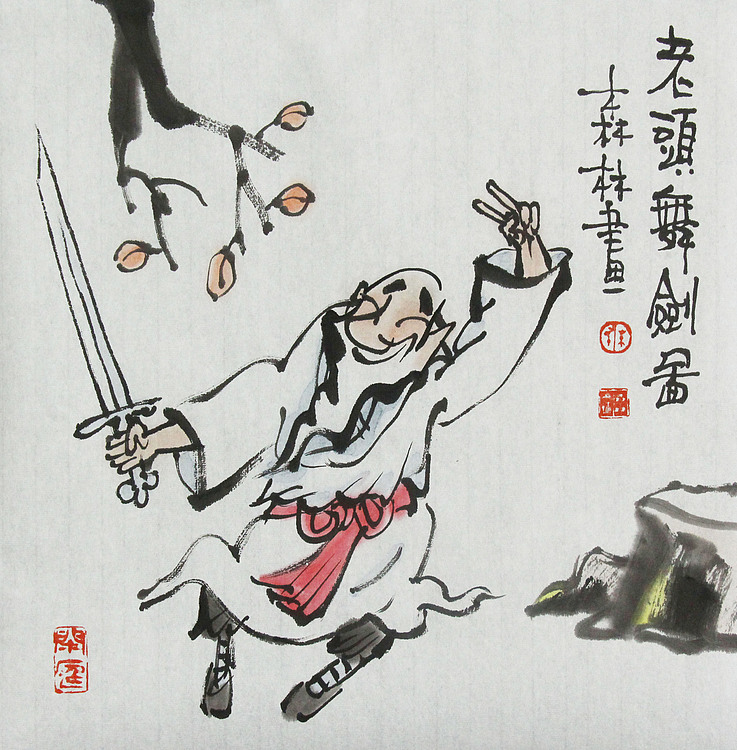 老頭舞劍圖
森林畫